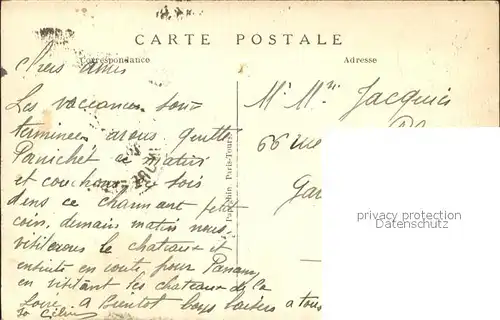 CARTE POSTALE
Correspondance
Adresse
Chers amis
Les vaccances son=
terminees avons quitté
Panichet ce matin
et couchons ce sois
dens ce charmant petit
coin, demains matin nous
visiterons le chateaux et
ensuite en route pour Panam,
en visitant les chateaux de la
Loire. A bientot bons baisers a tous
Mr Mme Jacquis
66 rue
Gar
Papeghin Paris-Tours
privacy protection
Datenschutz